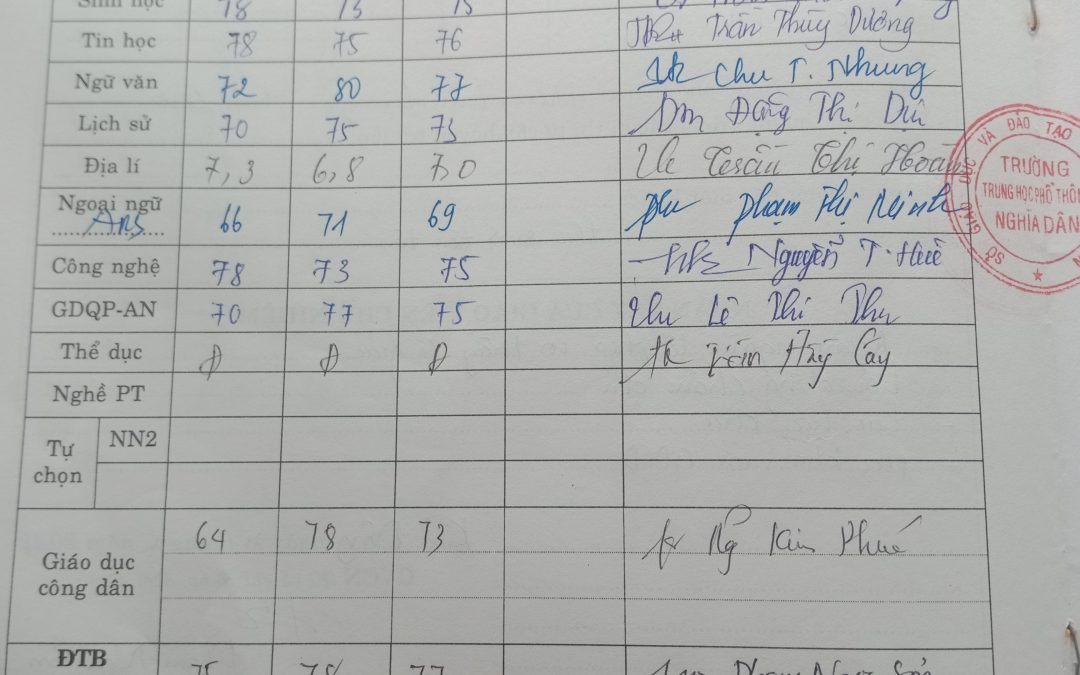 Sinh học 78 73 75
Tin học 78 75 76 Trần Thùy Dương
Ngữ văn 72 80 77 Chu T. Nhung
Lịch sử 70 75 73 Đặng Thị Dịu
Địa lí 7,3 6,8 7,0 Thị Hoàn
Ngoại ngữ 66 71 69 Phạm Thị Minh
Anh
Công nghệ 78 73 75 Nguyễn T. Huê
GDQP-AN 70 77 75 Lê Thị Thu
Thể dục Đ Đ Đ
Nghề PT
Tự chọn NN2
Giáo dục công dân 64 78 73 Ng Kim Phuế
ĐTB 75 78 77 Phạm
SỞ GIÁO DỤC VÀ ĐÀO TẠO
TRƯỜNG
TRUNG HỌC PHỔ THÔN
NGHĨA DÂN